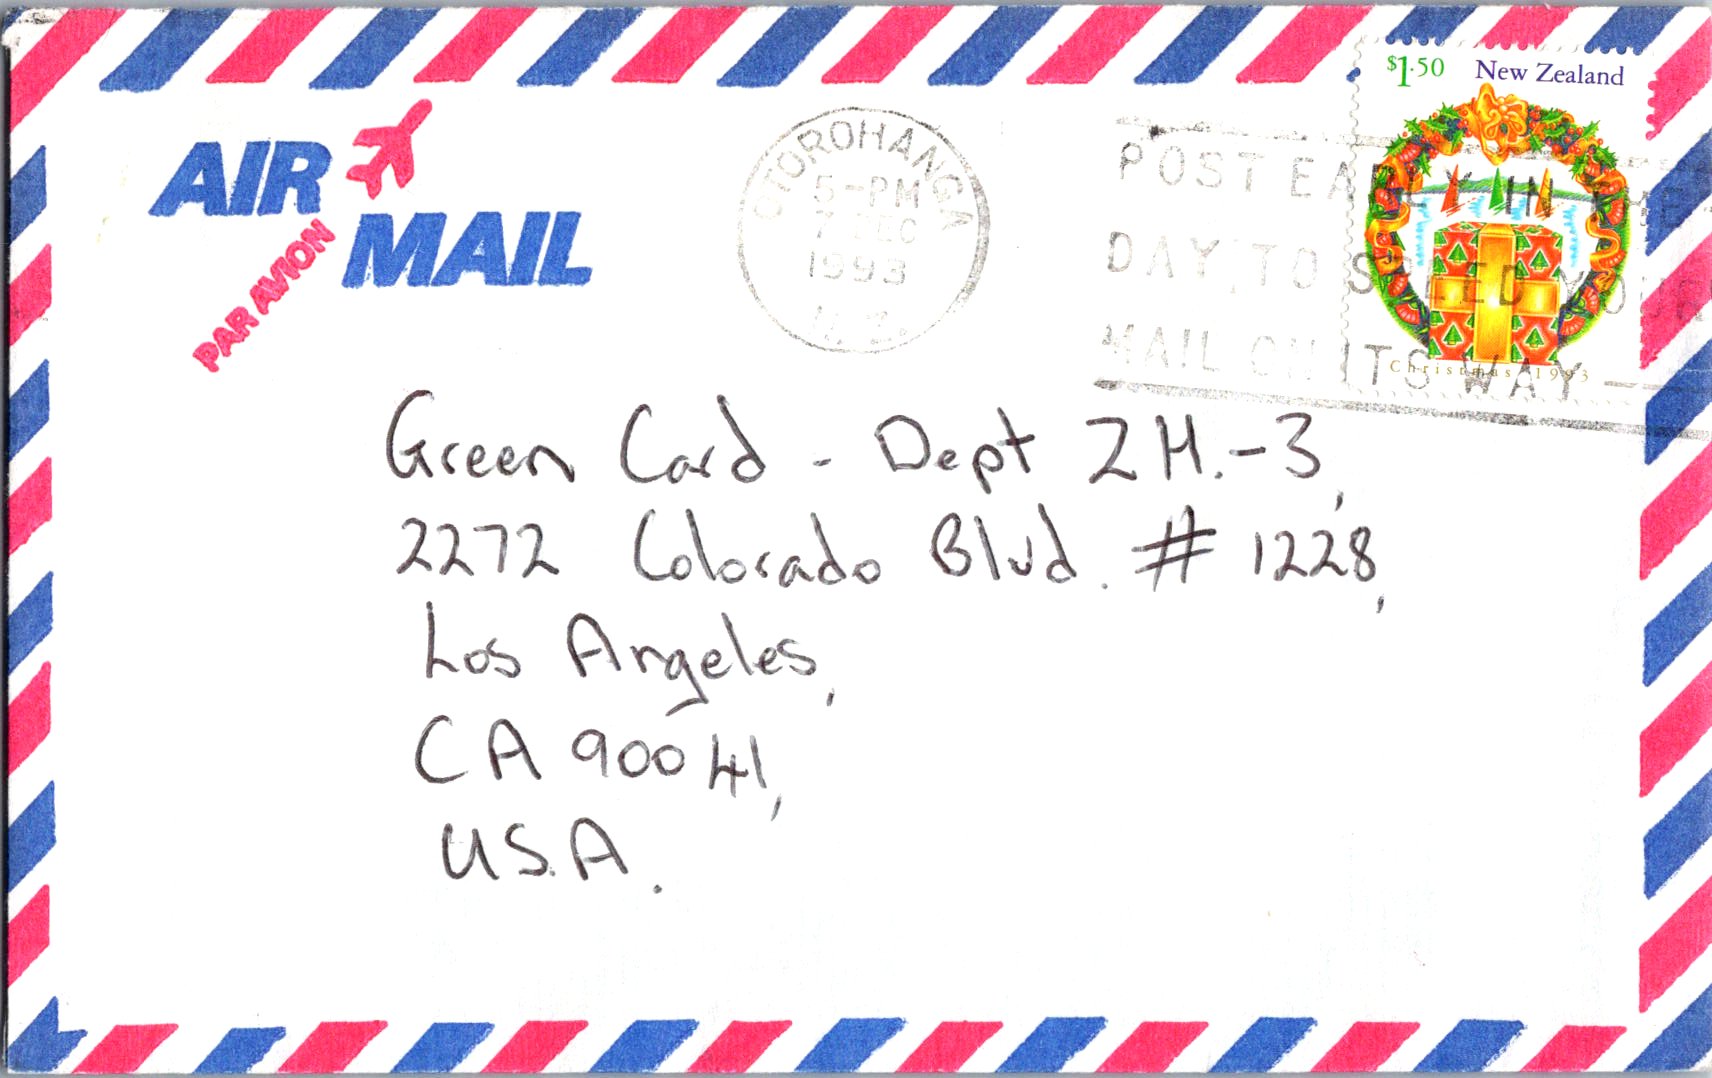 AIR
MAIL
PAR AVION
OTOROHANGA
5-PM
7 DEC
1993
N.Z.
POST EARLY IN THE
DAY TO SPEED YOUR
MAIL ON ITS WAY
$1.50 New Zealand
Christmas 1993
Green Card - Dept ZH.-3,
2272 Colorado Blvd. # 1228,
Los Angeles,
CA 90041,
U.S.A.